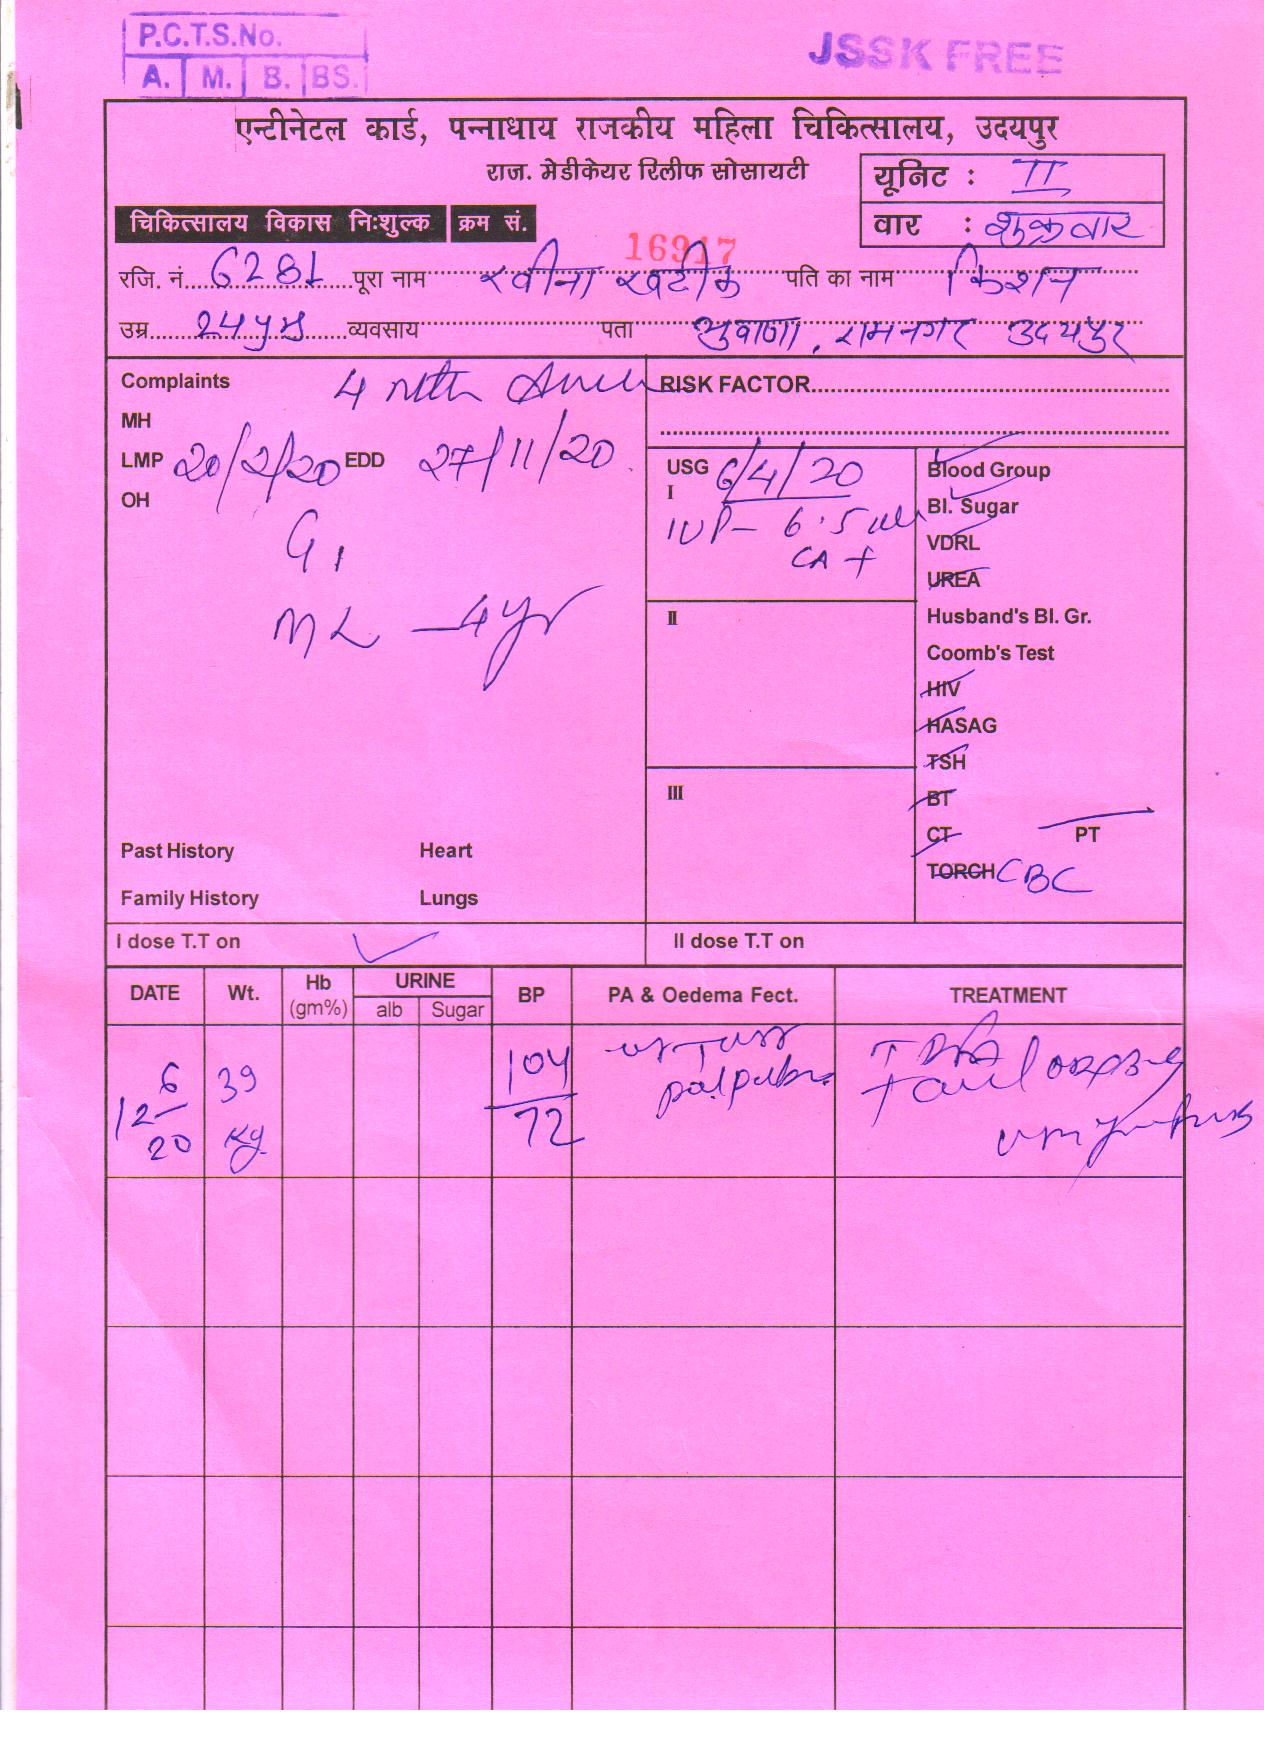 P.C.T.S.No.
A. M. B. BS.
JSSK FREE
एन्टीनेटल कार्ड, पन्नाधाय राजकीय महिला चिकित्सालय, उदयपुर
राज. मेडीकेयर रिलीफ सोसायटी
यूनिट : II
वार : शुक्रवार
चिकित्सालय विकास निःशुल्क क्रम सं. 16917
रजि. नं. 6281 पूरा नाम रवीना खटीक पति का नाम किशन
उम्र 24 व्यवसाय पता भुवाणा, रामनगर उदयपुर
Complaints 4 Mth
RISK FACTOR
MH
LMP 20/2/20 EDD 27/11/20
OH
G1
ML - 4yr
USG 6/4/20
I
IUP - 6.5
CA +
II
III
Blood Group
Bl. Sugar
VDRL
UREA
Husband's Bl. Gr.
Coomb's Test
HIV
HASAG
TSH
BT
CT PT
TORCH CBC
Past History Heart
Family History Lungs
I dose T.T on ✓ II dose T.T on
DATE Wt. Hb (gm%) URINE alb Sugar BP PA & Oedema Fect. TREATMENT
12/6/20 39 Kg 104/72